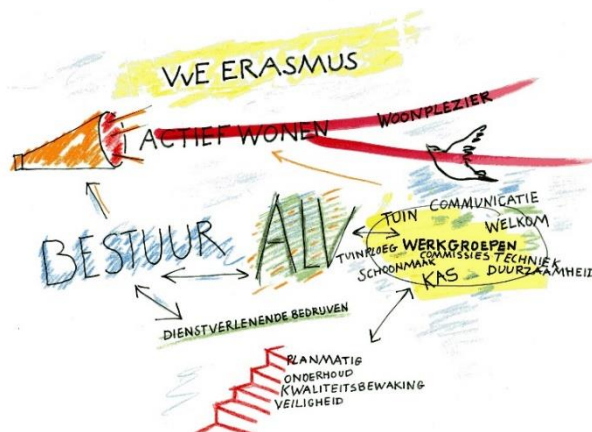 VVE ERASMUS
ACTIEF WONEN
WOONPLEZIER
BESTUUR
ALV
TUIN
COMMUNICATIE
WELKOM
TUINPLOEG
WERKGROEPEN
COMMISSIES
TECHNIEK
SCHOONMAAK
KAS
DUURZAAMHEID
DIENSTVERLENENDE BEDRIJVEN
PLANMATIG
ONDERHOUD
KWALITEITSBEWAKING
VEILIGHEID